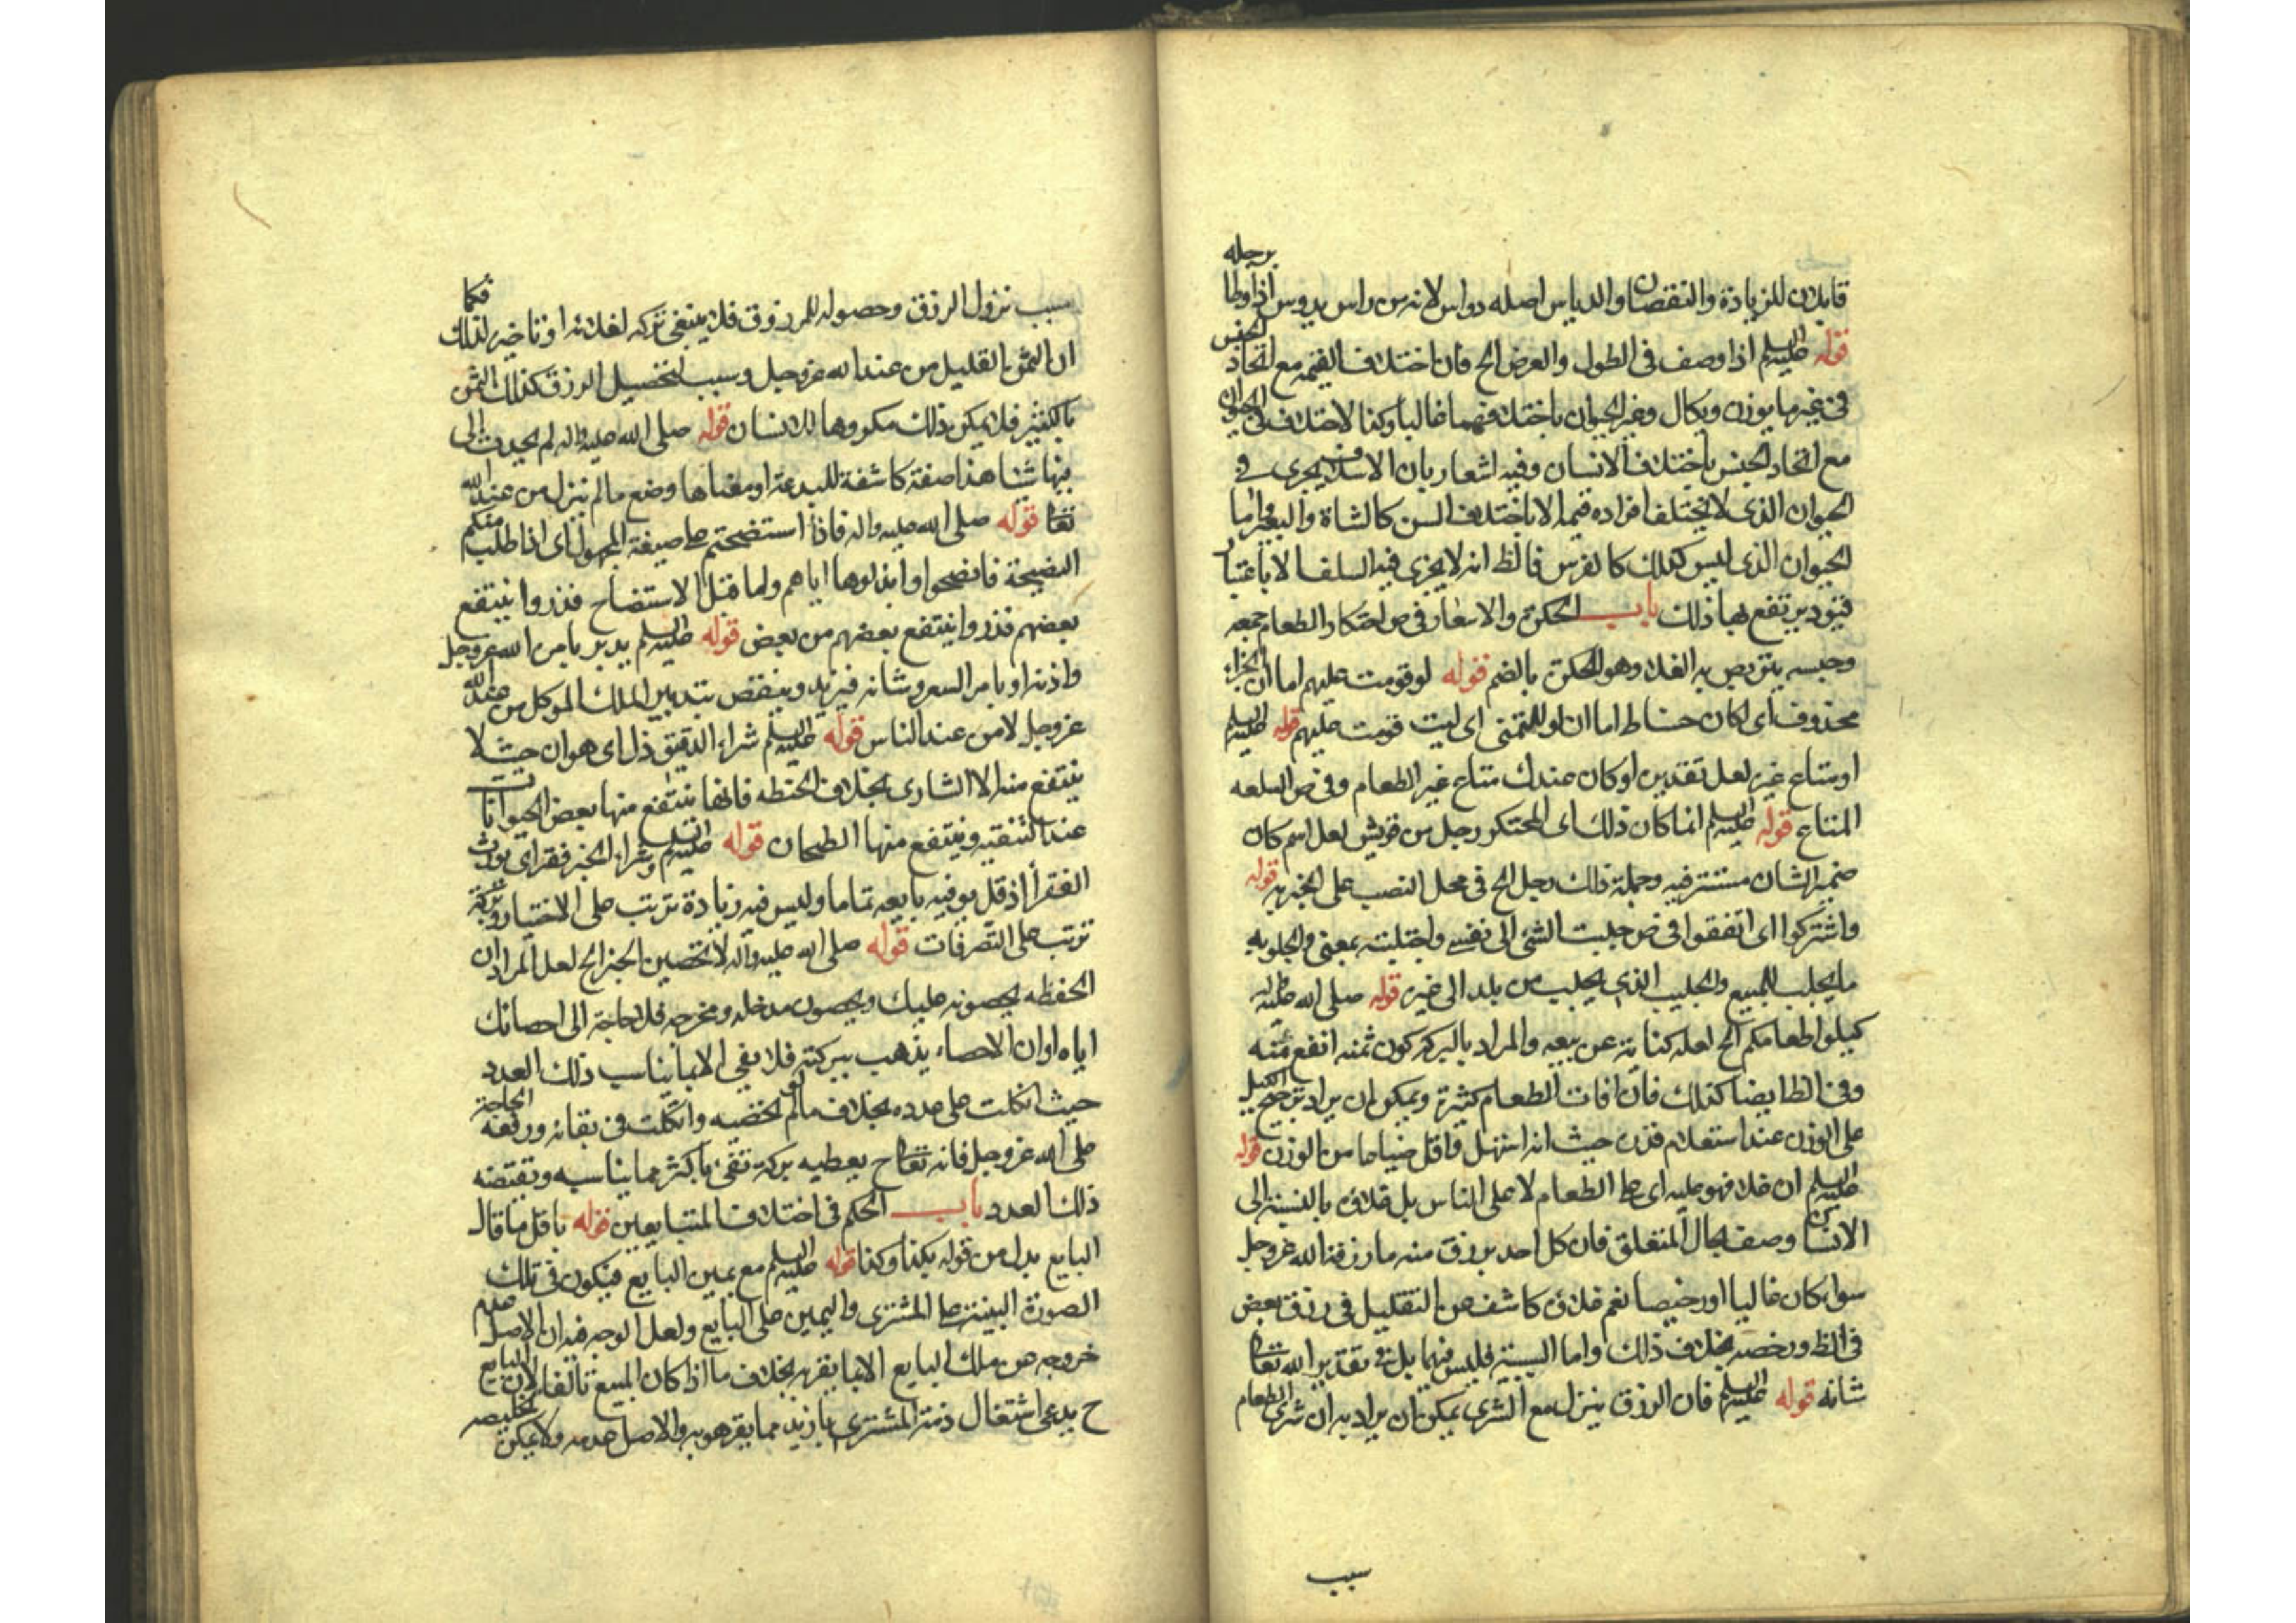 قابلان للزيادة والنقصان والدياس اصله دواس لانه من داس يدوس اذا وطا برجله
قوله عليه السلم اذا وصف فى الطول والعرض الخ فان اختلاف القيمة مع اتحاد الجنس
فى غير ما يوزن ويكال وغير الحيوان باختلافهما غالبا وكذا الاختلاف فى الحيوان
مع اتحاد الجنس باختلاف الانسان وفيه اشعار بان الاسلاف يجرى فى
الحيوان الذى لا يختلف افراده قيما الا باختلاف السن كالشاة والبعير واما
الحيوان الذى ليس كذلك كالفرس فالظ انه لا يجرى فيه السلف الا باعتبار
قيود يرتفع بها ذلك باب الحكرة والاسعار وفى ص احتكار الطعام جمعه
وحبسه يتربص به الغلا وهو الحكرة بالضم قوله لو قومت عليهم اما ان الجزاء
محذوف اى لكان حسنا واما ان لو للتمنى اى ليت قومت عليهم قوله عليه السلم
او متاع غيره لعل تقديره او كان عندك متاع غير الطعام وفى ص السلعه
المتاع قوله عليه السلم انما كان ذلك اى المحتكر رجل من قريش لعل اسم كان
ضمير الشان مستتر فيه وجملة ذلك رجل الخ فى محل النصب على الخبرية قوله
واشتركوا اى اتفقوا فى ص جلبت الشئ الى نفسى واجتلبته بمعنى والجلوبه
ما يجلب للبيع والجليب الذى يجلب من بلد الى غيره قوله صلى الله عليه واله
كيلوا طعامكم الخ لعله كناية عن بيعه والمراد بالبركة كون ثمنه انفع منه
وفى الظ ايضا كذلك فان افات الطعام كثيرة ويمكن ان يراد ترجيح الكيل
على الوزن عند استعلام قدره حيث انه اسهل واقل ضياعا من الوزن قوله
عليه السلم ان غلا فهو عليه اى على الطعام لا على الناس بل غلاؤه بالنسبة الى
الانسان وصف بحال المتعلق فان كل احد يرزق منه ما رزقه الله عز وجل
سواء كان غاليا او رخيصا نعم غلاؤه كاشف عن التقليل فى رزق بعض
فى الظ ورخصه بخلاف ذلك واما السببية فليس فيهما بل فى تقدير الله تعالى
شانه قوله عليه السلم فان الرزق ينزل مع الشرى يمكن ان يراد به ان شرى الطعام
سبب
سبب نزول الرزق وحصوله للمرزوق فلا ينبغى تركه لغلائه او تاخيره لذلك فكما
ان الثمن القليل من عند الله عز وجل وسبب لتحصيل الرزق كذلك الثمن
الكثير فلا يمكن ذلك مكروها للانسان قوله صلى الله عليه واله لم يحدث الى
فيها شئا هذا صفة كاشفة للبدعة او معناها وضع ما لم ينزل من عند الله
تعالى قوله صلى الله عليه واله فاذا استنصحتم على صيغة المجهول اى اذا طلب منكم
النصيحة فانصحوا وابذلوها اياهم ولما قبل الاستنصاح فذروا ينتفع
بعضهم فذروا ينتفع بعضهم من بعض قوله عليه السلم يدبره بامره الله عز وجل
واذنه او بامر السعر وشانه فيزيد وينقص بتدبير الملك الموكل من عند الله
عز وجل لا من عند الناس قوله عليه السلم شراء الدقيق ذل اى هوان حيث لا
ينتفع منه الا الشارى بخلاف الحنطه فانها ينتفع منها بعض الحيوانات
عند التنقيه وينتفع منها الطحان قوله عليه السلم وشراء الخبز فقر اى يورث
الفقر اذ قل يوفيه بايعه تماما وليس فيه زيادة ترتب على الاختيار وبركة
ترتب على التصرفات قوله صلى الله عليه واله لا تحصين الخبز الخ لعل المراد ان
الحفظه يحصونه عليك ويحصون مدخله ومخرجه فلا حاجة الى احصائك
اياه او ان الاحصاء يذهب ببركته فلا يفى الا بما يناسب ذلك العدد
حيث اتكلت على عدده بخلاف ما لو لم تحصيه واتكلت فى بقائه ورفعه الحاجة
على الله عز وجل فانه تعالى ح يعطيه بركة تفى باكثر مما يناسبه ويقتضه
ذلك العدد باب الحكم فى اختلاف المتبايعين قوله باقل ما قال
البايع بدل من قوله بكذا وكذا قوله عليه السلم مع يمين البايع فيكون فى تلك
الصورة البينة على المشترى واليمين على البايع ولعل الوجه فيه ان الاصل عدم
خروجه عن ملك البايع الا بما يقر به بخلاف ما اذا كان المبيع تالفا لان البايع
ح يدعى اشتغال ذمة المشترى بازيد مما يقر هو به والاصل عدمه ولا يمكن تخليصه